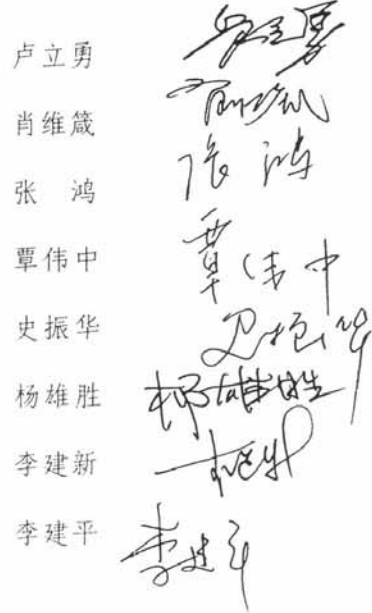 卢立勇 卢立勇
肖维箴 肖维箴
张 鸿 张鸿
覃伟中 覃伟中
史振华 史振华
杨雄胜 杨雄胜
李建新 李建新
李建平 李建平